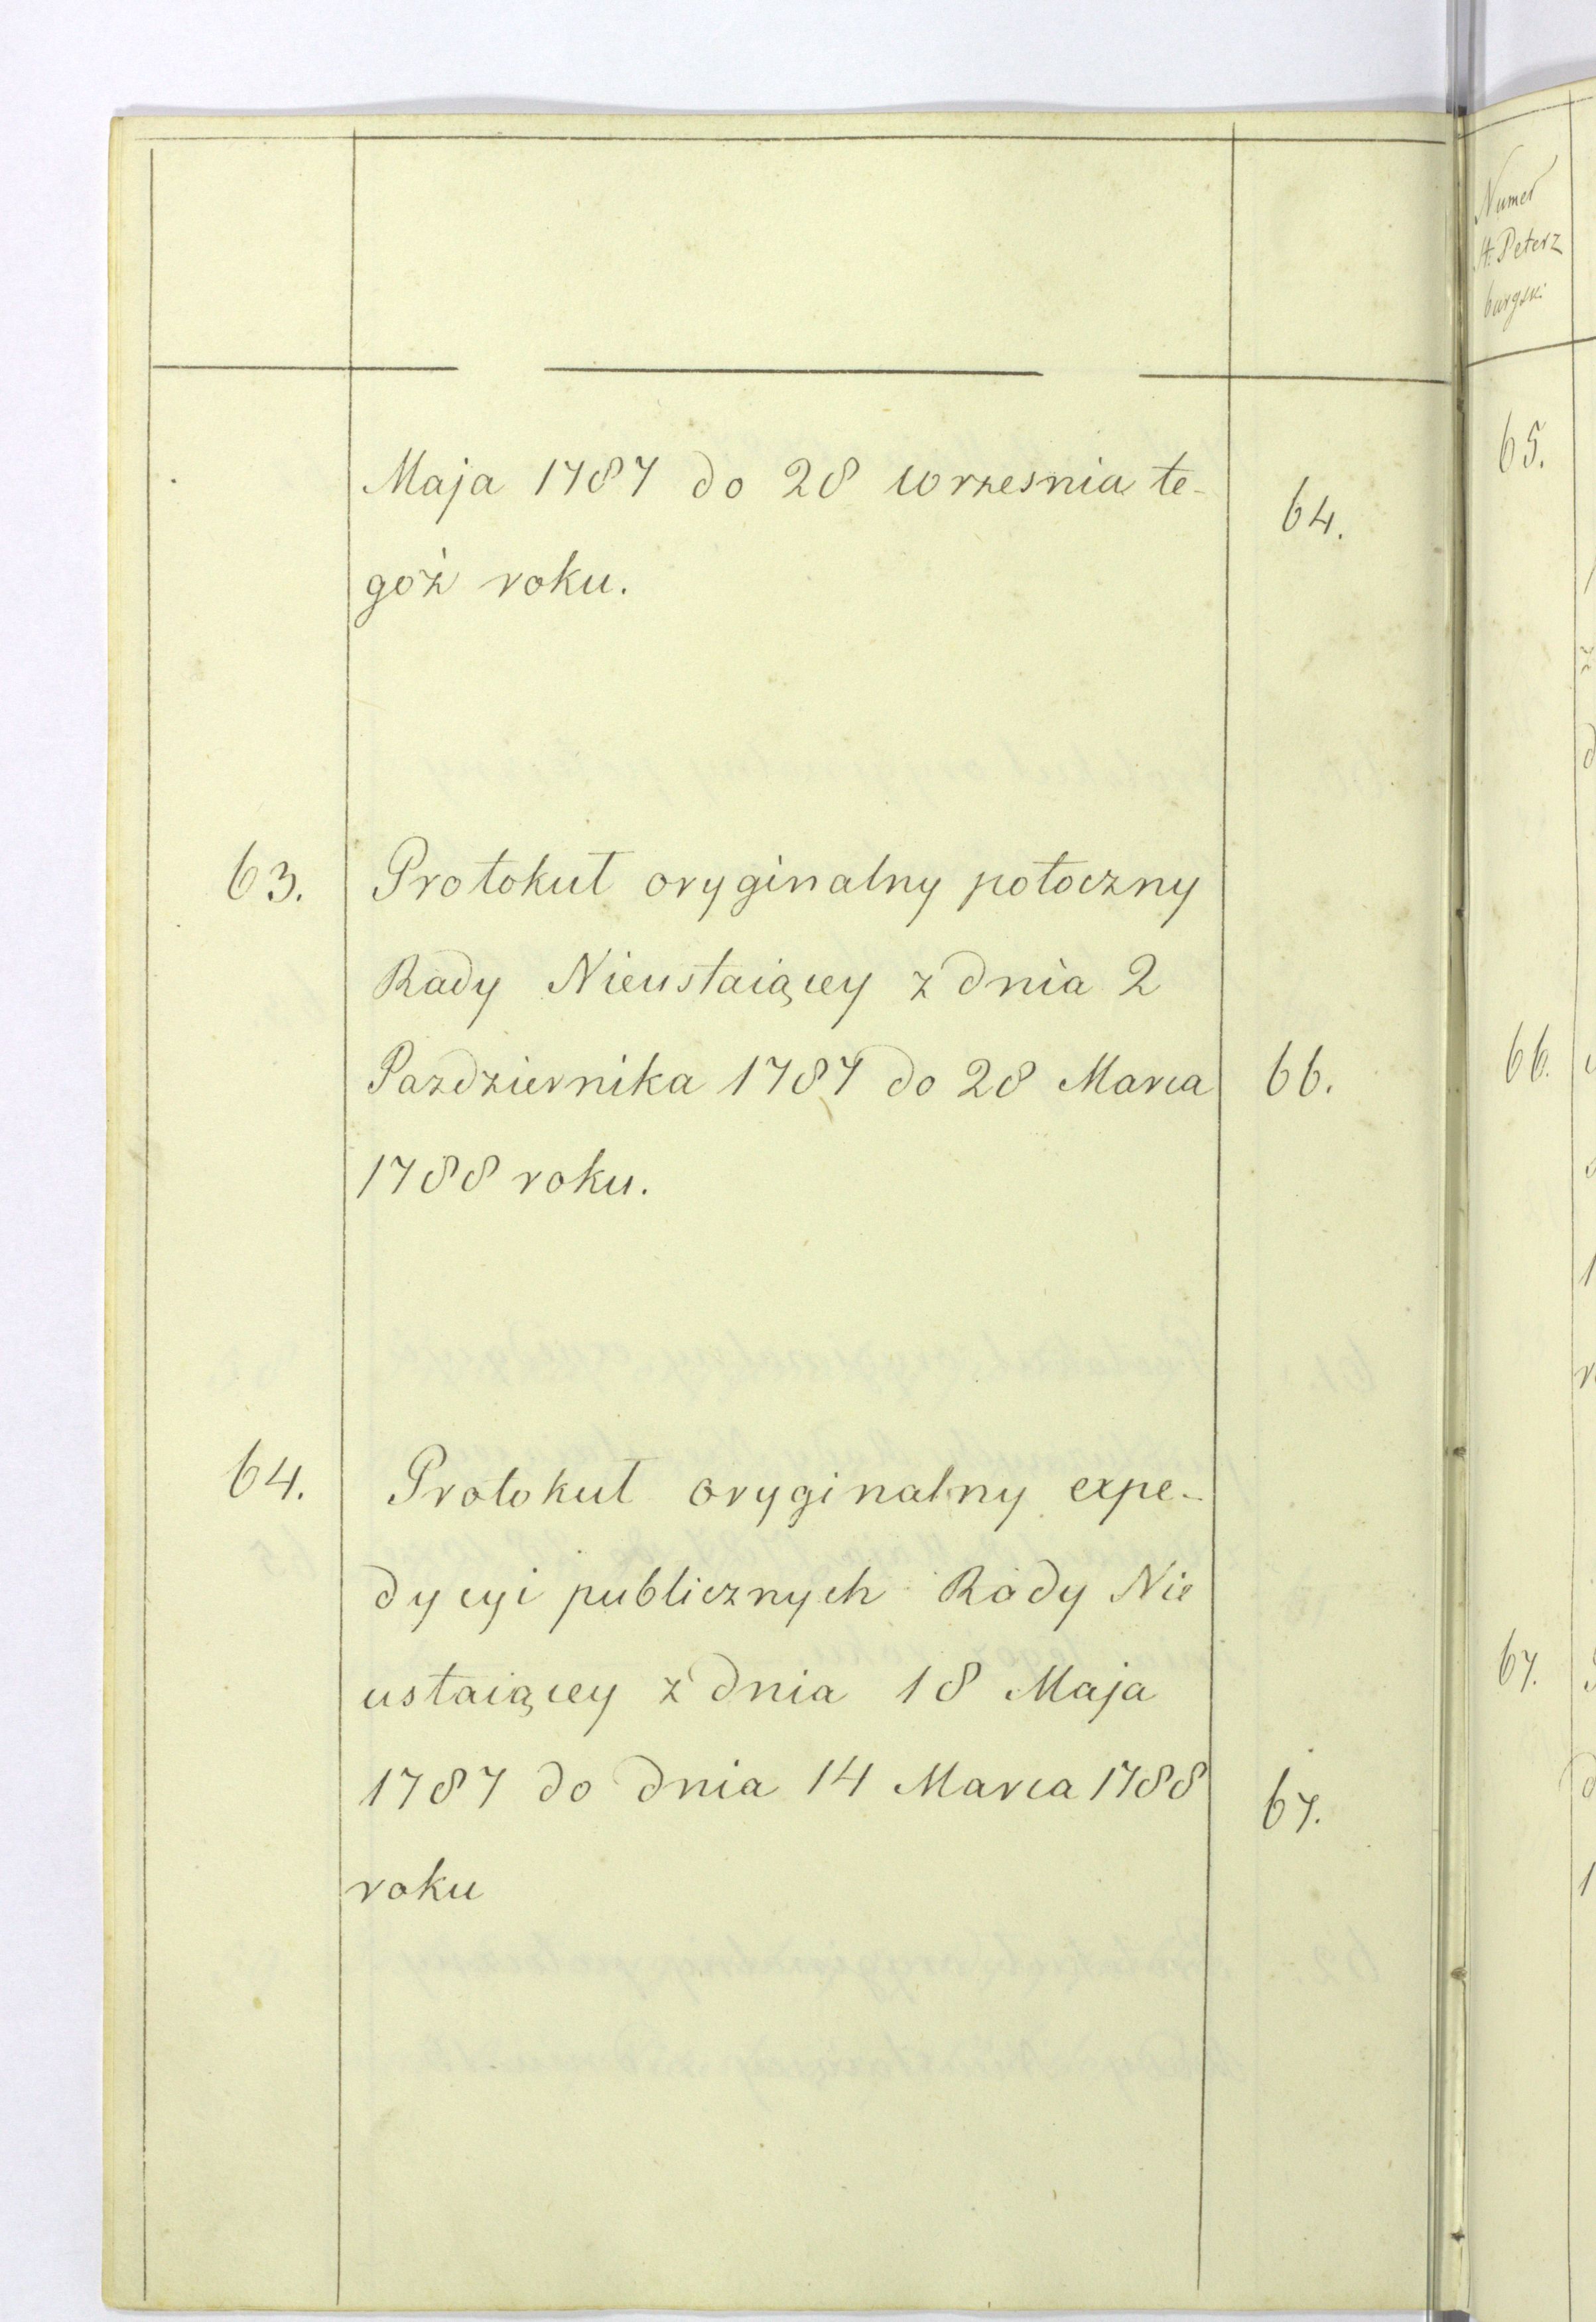 Maja 1787 do 28 wrzesnia te-
goż roku.
64.
63.
Protokuł oryginalny potoczny
Rady Nieustaiącey z dnia 2
Pazdziernika 1787 do 28 Marca
66.
1788 roku.
64.
Protokuł oryginalny expe-
dycyi publicznych Rady Nie
ustaiącey z dnia 18 Maja
1787 do dnia 14 Marca 1788
67.
roku
Numer
St. Peterz
burgski
65.
66.
67.